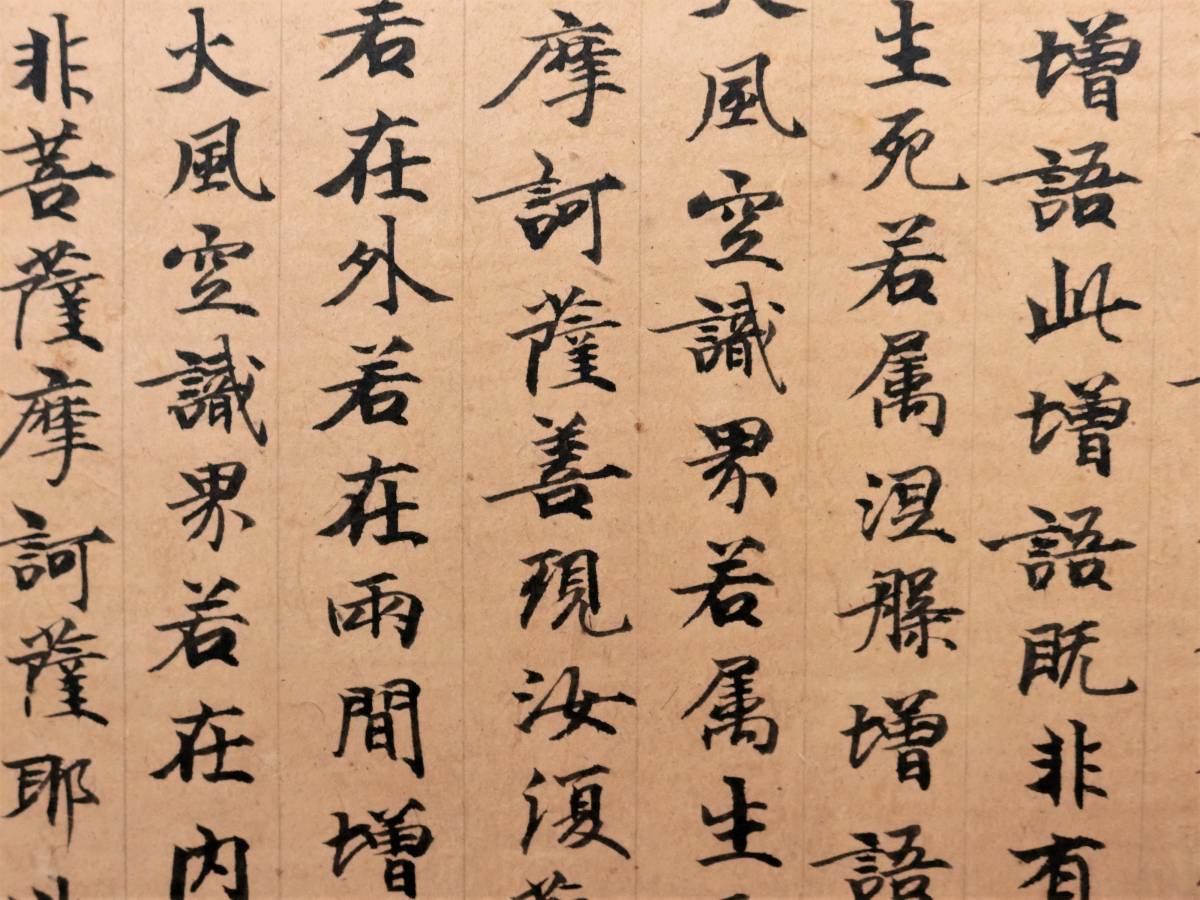 增語此增語既非有
生死若属涅槃增語
風空識界若属生
摩訶薩善現汝復
若在外若在兩間增
火風空識界若在内
非菩薩摩訶薩耶